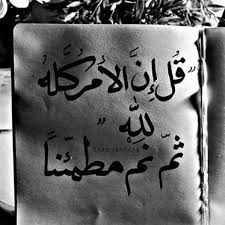 "قُل إِنَّ الأَمرَ كُلَّهُ
لِلَّهِ"
ثمّ نم مطمئنًا